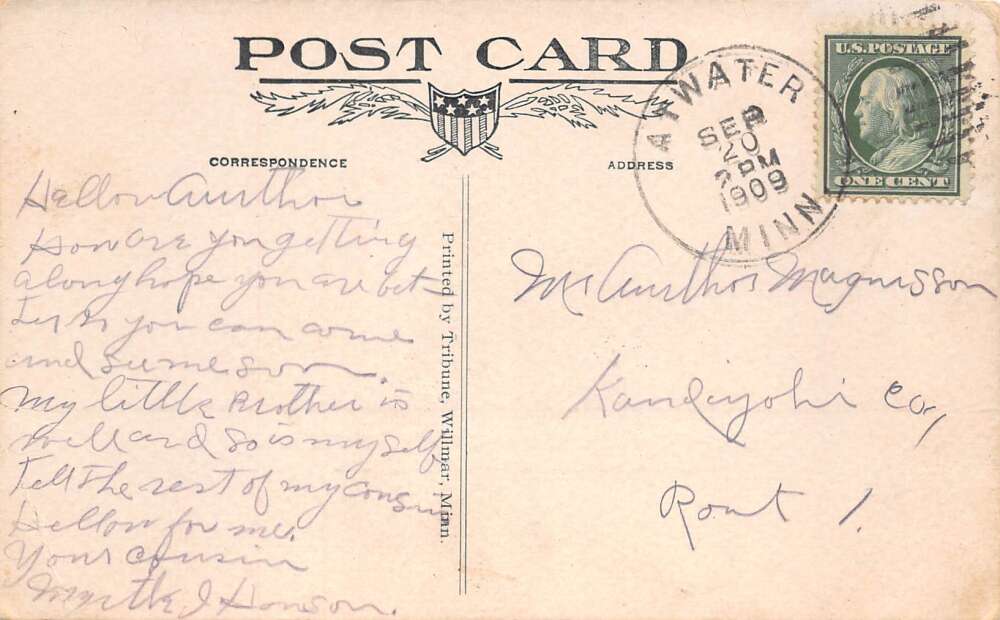 POST CARD
CORRESPONDENCE
ADDRESS
U.S. POSTAGE
ONE CENT
ATWATER
SEP
20
PM
1909
MINN.
Hellow Aurthor
How are you getting
along hope you are bet-
ter so you can come
and see me soon.
my little Brother is
well and so is my self
Tell the rest of my cousins
Hellow for me.
Your cousin
Myrtle J Hanson.
Printed by Tribune, Willmar, Minn.
Mr Aurthor Magnusson
Kandiyohi Co,
Rout 1.